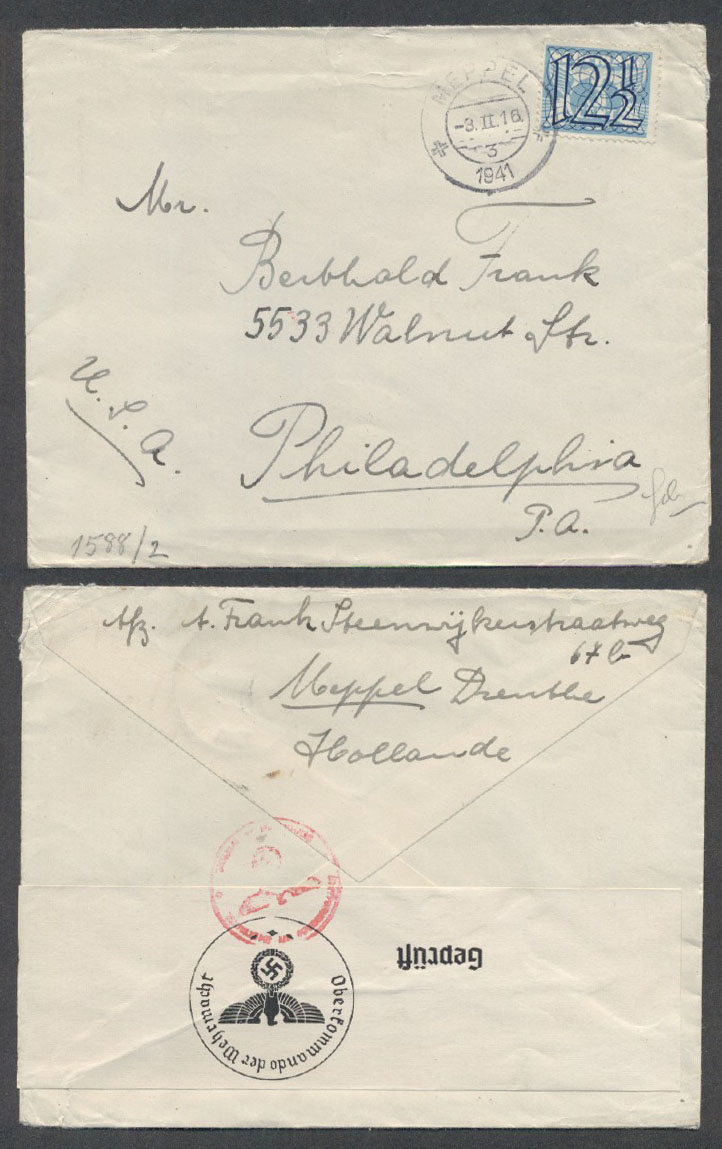 MEPPEL
-3.II.16
3
1941
12½
Mr.
Berthold Frank
5533 Walnut Str.
U.S.A.
Philadelphia
P.A.
1588/2
Afz. A. Frank Steenwijkerstraatweg
67 b
Meppel Drenthe
Hollande
Geprüft
Oberkommando der Wehrmacht